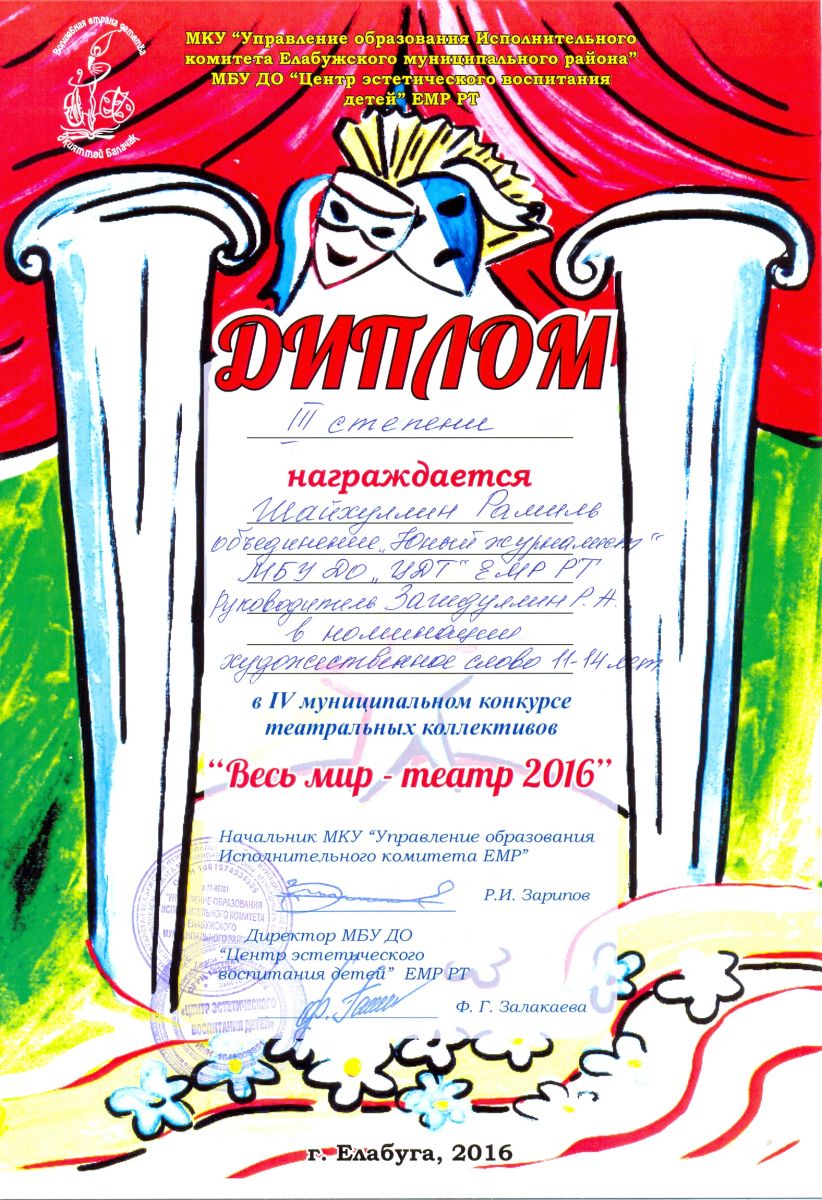 Волшебная страна детства
МКУ “Управление образования Исполнительного
комитета Елабужского муниципального района”
МБУ ДО “Центр эстетического воспитания
детей” ЕМР РТ
ДИПЛОМ
III степени
награждается
Шайхуллин Рамиль
объединение „Юный журналист“
МБУ ДО „ЦДТ“ ЕМР РТ
Руководитель Загидуллин Р. А.
в номинации
художественное слово 11-14 лет
в IV муниципальном конкурсе
театральных коллективов
“Весь мир - театр 2016”
Начальник МКУ “Управление образования
Исполнительного комитета ЕМР”
Р.И. Зарипов
"УПРАВЛЕНИЕ ОБРАЗОВАНИЯ
ИСПОЛНИТЕЛЬНОГО КОМИТЕТА
ЕЛАБУЖСКОГО
Директор МБУ ДО
“Центр эстетического
воспитания детей” ЕМР РТ
Ф. Г. Залакаева
«ЦЕНТР ЭСТЕТИЧЕСКОГО
ВОСПИТАНИЯ ДЕТЕЙ»
г. Елабуга, 2016